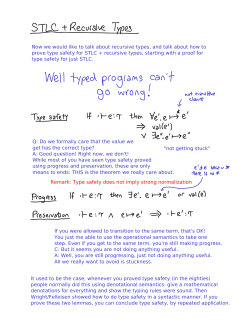 STLC + Recursive Types
Now we would like to talk about recursive types, and talk about how to
prove type safety for STLC + recursive types, starting with a proof for
type safety for just STLC.
Well typed programs can't
go wrong!
not transitive
closure
Type safety If ·⊢e:τ then ∀e'. e ↦* e'
⇒ val(e')
∨ ∃e''. e' ↦ e''
Q: Do we formally care that the value we
get has the correct type?
A: Good question! Right now, we don't!
While most of you have seen type safety proved
using progress and preservation, these are only
means to ends: THIS is the theorem we really care about.
"not getting stuck"
Remark: Type safety does not imply strong normalization
Progress If ·⊢e:τ then ∃e'. e ↦ e' or val(e)
Preservation ·⊢e:τ ∧ e ↦ e' ⇒ ·⊢e':τ
If you were allowed to transition to the same term, that's OK!
You just me able to use the operational semantics to take one
step. Even if you get to the same term. you're still making progress.
C: But it seems you are not doing anything useful.
A: Well, you are still progressing, just not doing anything useful.
All we really want to avoid is stuckness.
It used to be the case, whenever you proved type safety (in the eighties)
people normally did this using denotational semantics: give a mathematical
denotations for everything and show the typing rules were sound. Then
Wright/Felleisen showed how to do type safety in a syntactic manner. If you
prove these two lemmas, you can conclude type safety, by repeated application.